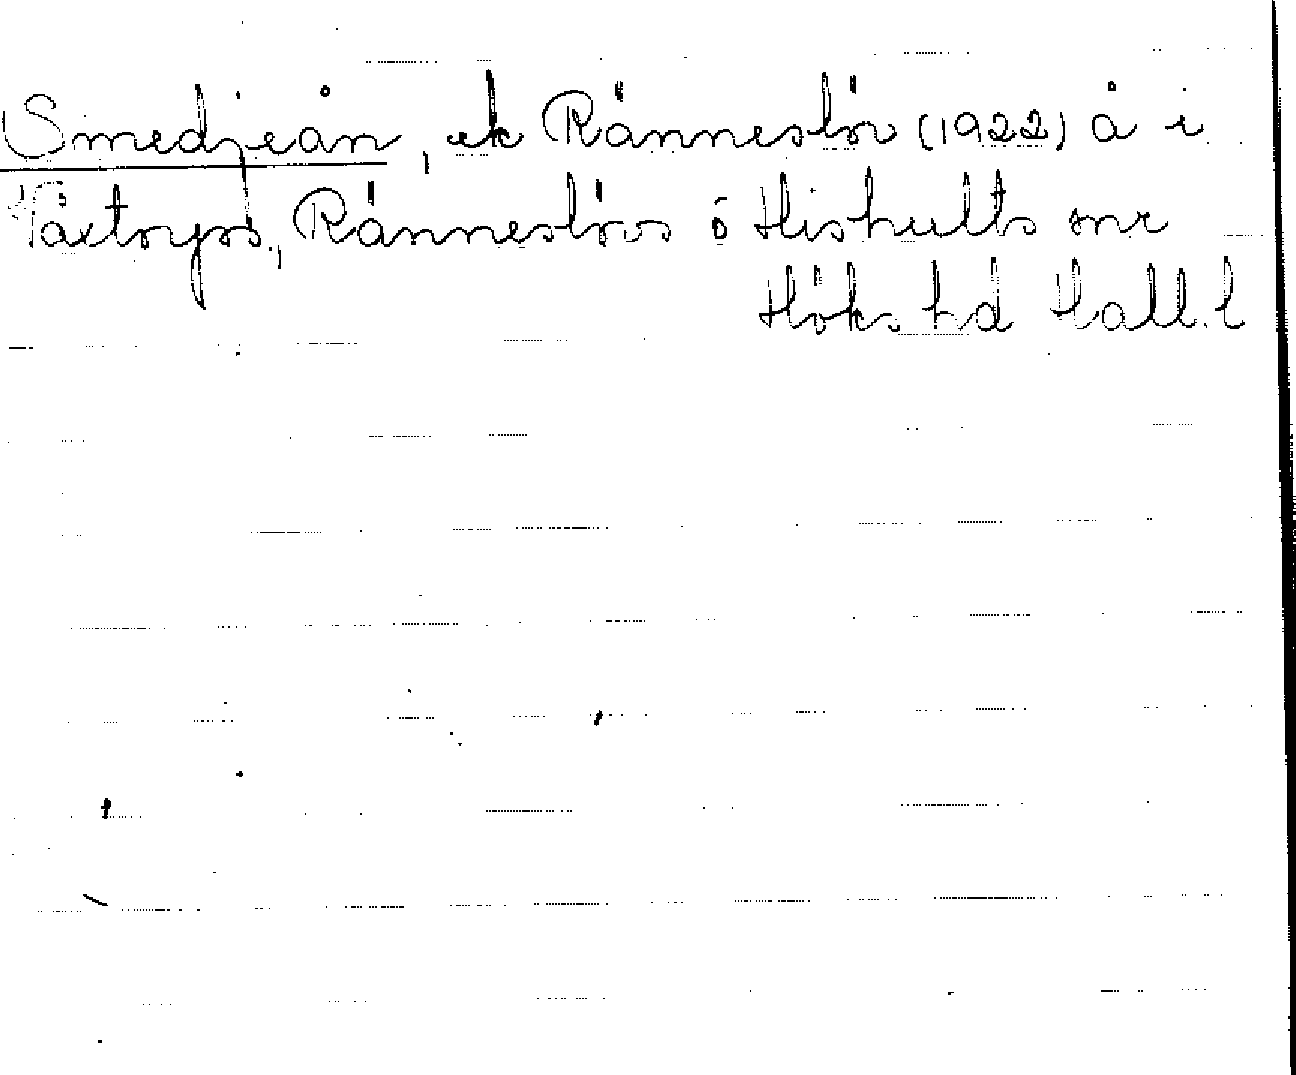 Smedjeån, ek Ränneslöv (1922) å i
Växtorps, Ränneslövs ö Hishults snr
Höks hd Hall. l